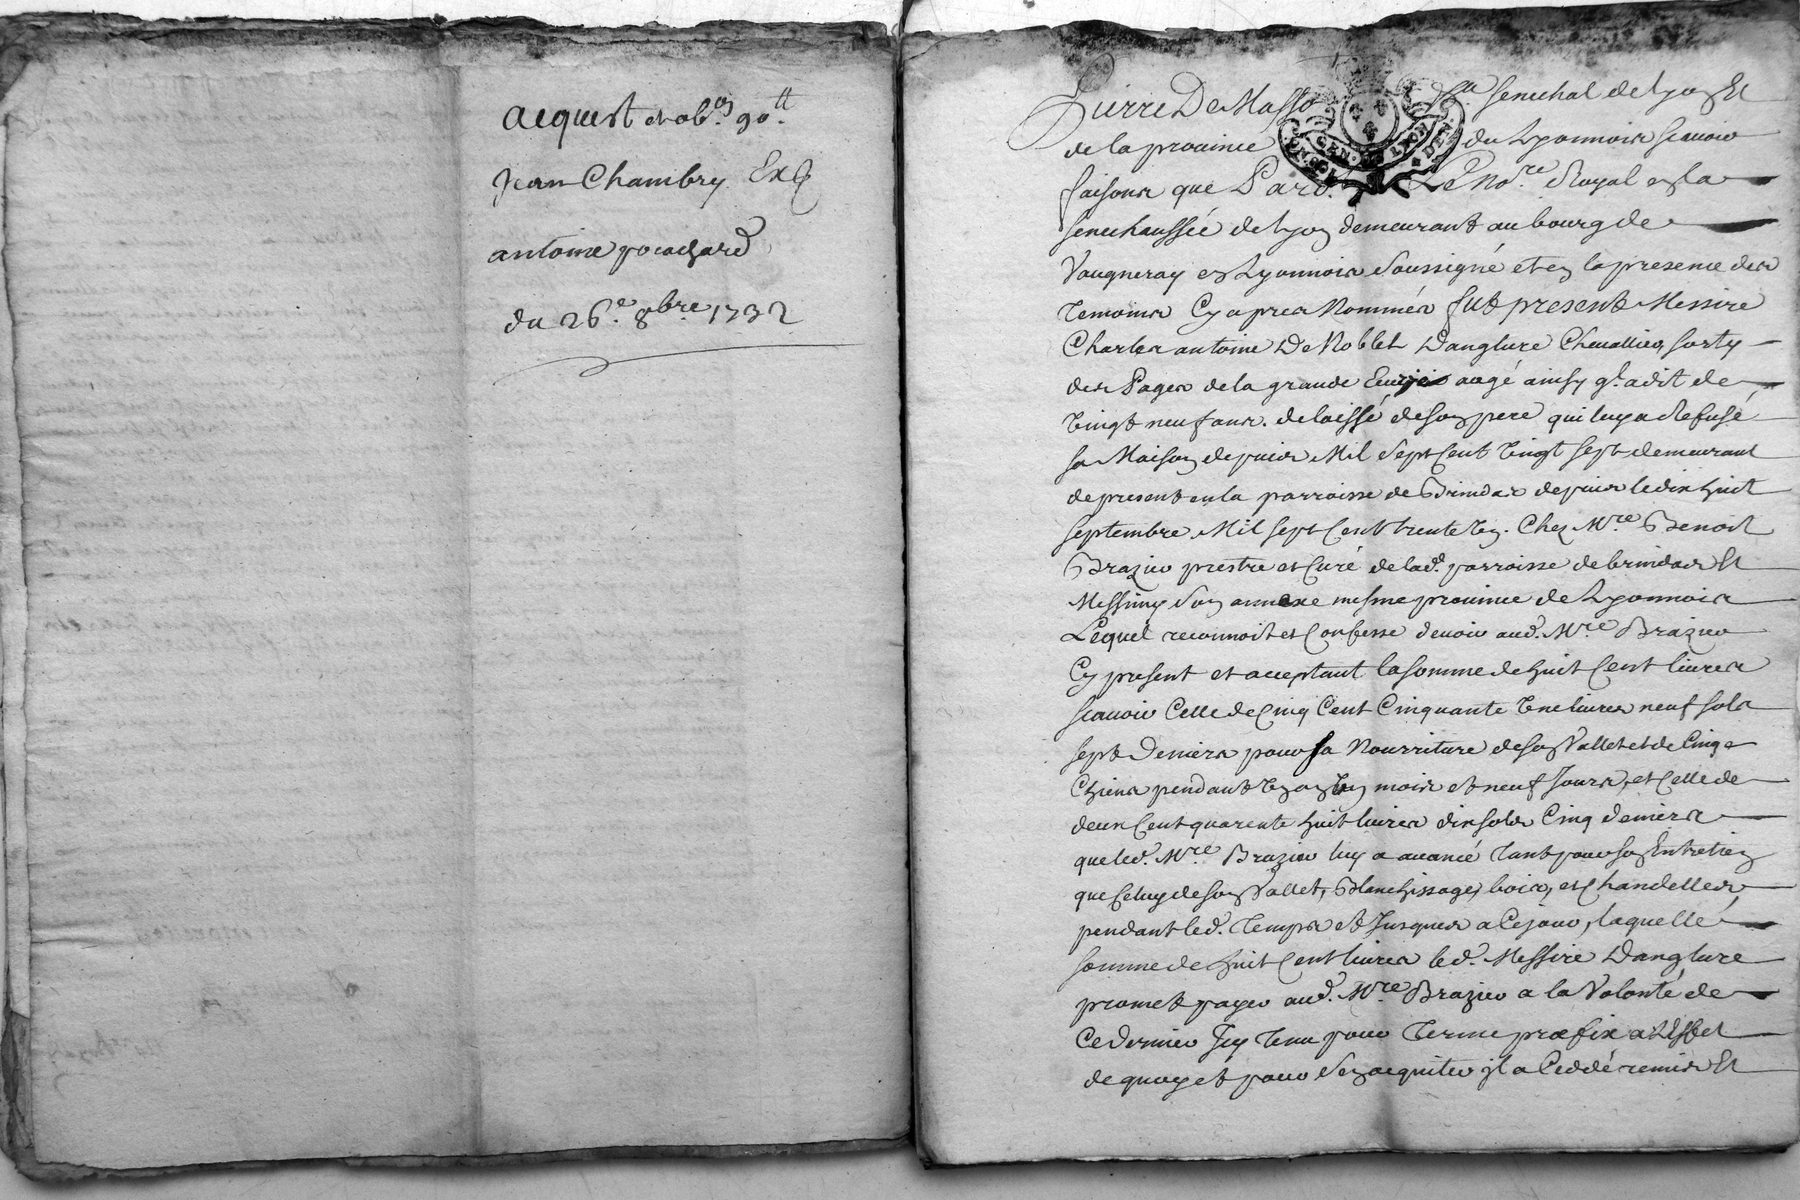 acquest et ob.on 90.tt
Jean Chambry Ex
antoine pocachard
du 26.e 8bre 1732
Pierre De Masso senechal de Lyon Et
de la province du Lyonnois scavoir
faisons que Pard. Le No.re Royal en la
senechaussée de Lyon demeurant au bourg de
Vaugneray en Lyonnois soussigné et en la presence des
temoins Cy apres Nommés fut present Messire
Charles antoine De Noblet Danglure Chevallier, sorty
des Pages de la grande Ecurie aagé ainsy ql. a dit de
vingt neuf ans. delaissé de son pere qui luy a Refusé
sa Maison depuis Mil Sept Cent vingt sept demeurant
de present en la parroisse de Brindas depuis le dix huit
septembre Mil sept Cent trente un. Chez M.re Benoit
Brazier prestre et Curé de lad. parroisse de brindas Et
Messimy son annexe mesme province de Lyonnois
Lequel reconnoit et Confesse devoir aud. M.re Brazier
Cy present et acceptant la somme de huit Cent livres
scavoir Celle de Cinq Cent Cinquante une livres neuf sols
sept Deniers pour sa Nourriture de son Vallet et de Cinq
Chiens pendant un an un mois et neuf Jours, et Celle de
deux Cent quarente huit livres dix sols Cinq deniers
que led. M.re Brazier luy a avancé tant pour son Entretien
que Celuy de son Vallet, Blanchissage, bois, et Chandelles,
pendant led. temps et Jusques a Ce jour, laquelle
somme de huit Cent livres led. Messire Danglure
promet payer aud. M.re Brazier a la Volonté de
Ce dernier Icy tenu pour terme prefix a L'Effet
de quoy et pour s'en acquiter il a Ceddé remis Et